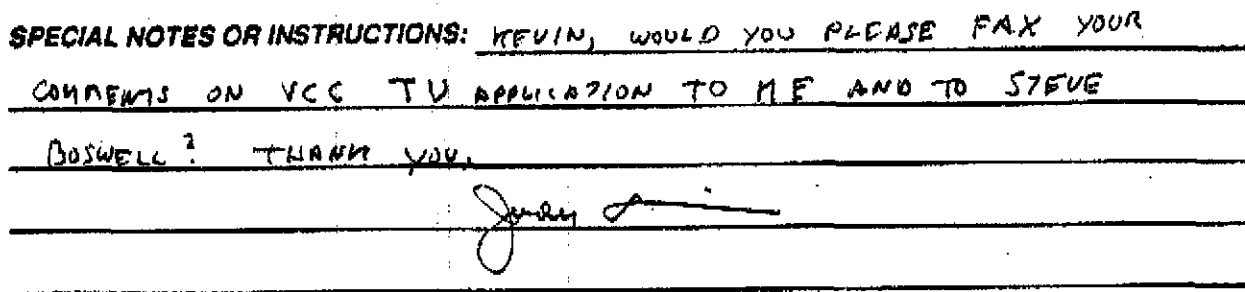 SPECIAL NOTES OR INSTRUCTIONS: KEVIN, WOULD YOU PLEASE FAX YOUR
COMMENTS ON VCC TV APPLICATION TO ME AND TO STEVE
BOSWELL? THANK YOU.
Judy